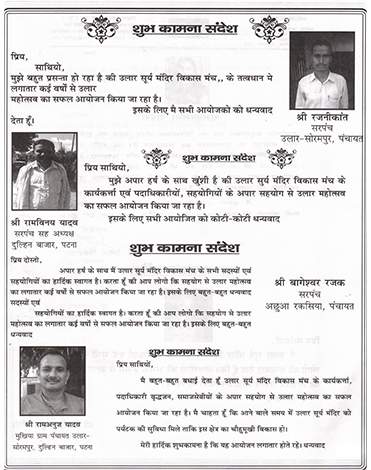 शुभ कामना संदेश
प्रिय,
साथियो,
मुझे बहुत प्रसन्ता हो रहा है की उलार सूर्य मंदिर विकास मंच,, के तत्वधान मे
लगातार कई वर्षो से उलार
महोत्सव का सफल आयोजन किया जा रहा है।
इसके लिए मै सभी आयोजको को धन्यवाद
देता हूँ।
श्री रजनीकांत
सरपंच
उलार-सोरमपुर, पंचायत
शुभ कामना संदेश
प्रिय साथियो,
मुझे अपार हर्ष के साथ खुशी है की उलार सूर्य मंदिर विकास मंच के
कार्यकर्त्ता एवं पदाधिकारीयों, सहयोगियों के अपार सहयोग से उलार महोत्सव
का सफल आयोजन किया जा रहा है।
इसके लिए सभी आयोजित को कोटी-कोटी धन्यवाद
श्री रामविनय यादव
सरपंच सह अध्यक्ष
दुल्हिन बाजार, पटना
शुभ कामना संदेश
प्रिय दोस्तो,
अपार हर्ष के साथ मैं उलार सूर्य मंदिर विकास मंच के सभी सदस्यों एवं
सहयोगियों का हार्दिक स्वागत है। करता हूँ की आप लोगो कि सहयोग से उलार महोत्सव
का लगातार कई वर्षो से सफल आयोजन किया जा रहा है। इसके लिए बहुत-बहुत धन्यवाद
सदस्यों एवं
सहयोगियों का हार्दिक स्वागत है। करता हूँ की आप लोगो कि सहयोग से उलार
महोत्सव का लगातार कई वर्षो से सफल आयोजन किया जा रहा है। इसके लिए बहुत-बहुत
धन्यवाद
श्री बागेश्वर रजक
सरपंच
अछुआ रकसिया, पंचायत
शुभ कामना संदेश
प्रिय साथियों,
मै बहुत-बहुत बधाई देता हूँ उलार सूर्य मंदिर विकास मंच के कार्यकर्त्ता,
पदाधिकारी वृद्धजन, समाजसेवीयों के अपार सहयोग से उलार महोत्सव का सफल
आयोजन किया जा रहा है। मै चाहता हूँ कि आने वाले समय में उलार सूर्य मंदिर को
पर्यटक की सुविधा मिले ताकि इस क्षेत्र का चौहुमुखी विकास हो।
मेरी हार्दिक शुभकामना है कि यह आयोजन लगातार होते रहे। धन्यवाद
श्री रामअनुज यादव
मुखिया ग्राम पंचायत उलार-
सोरमपुर, दुल्हिन बाजार, पटना